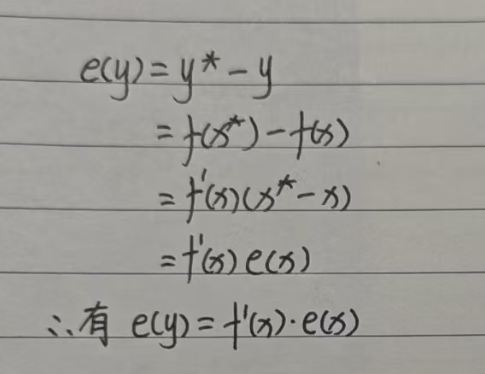 e(y) = y* - y
= f(x*) - f(x)
= f'(x)(x* - x)
= f'(x) e(x)
∴有 e(y) = f'(x)·e(x)